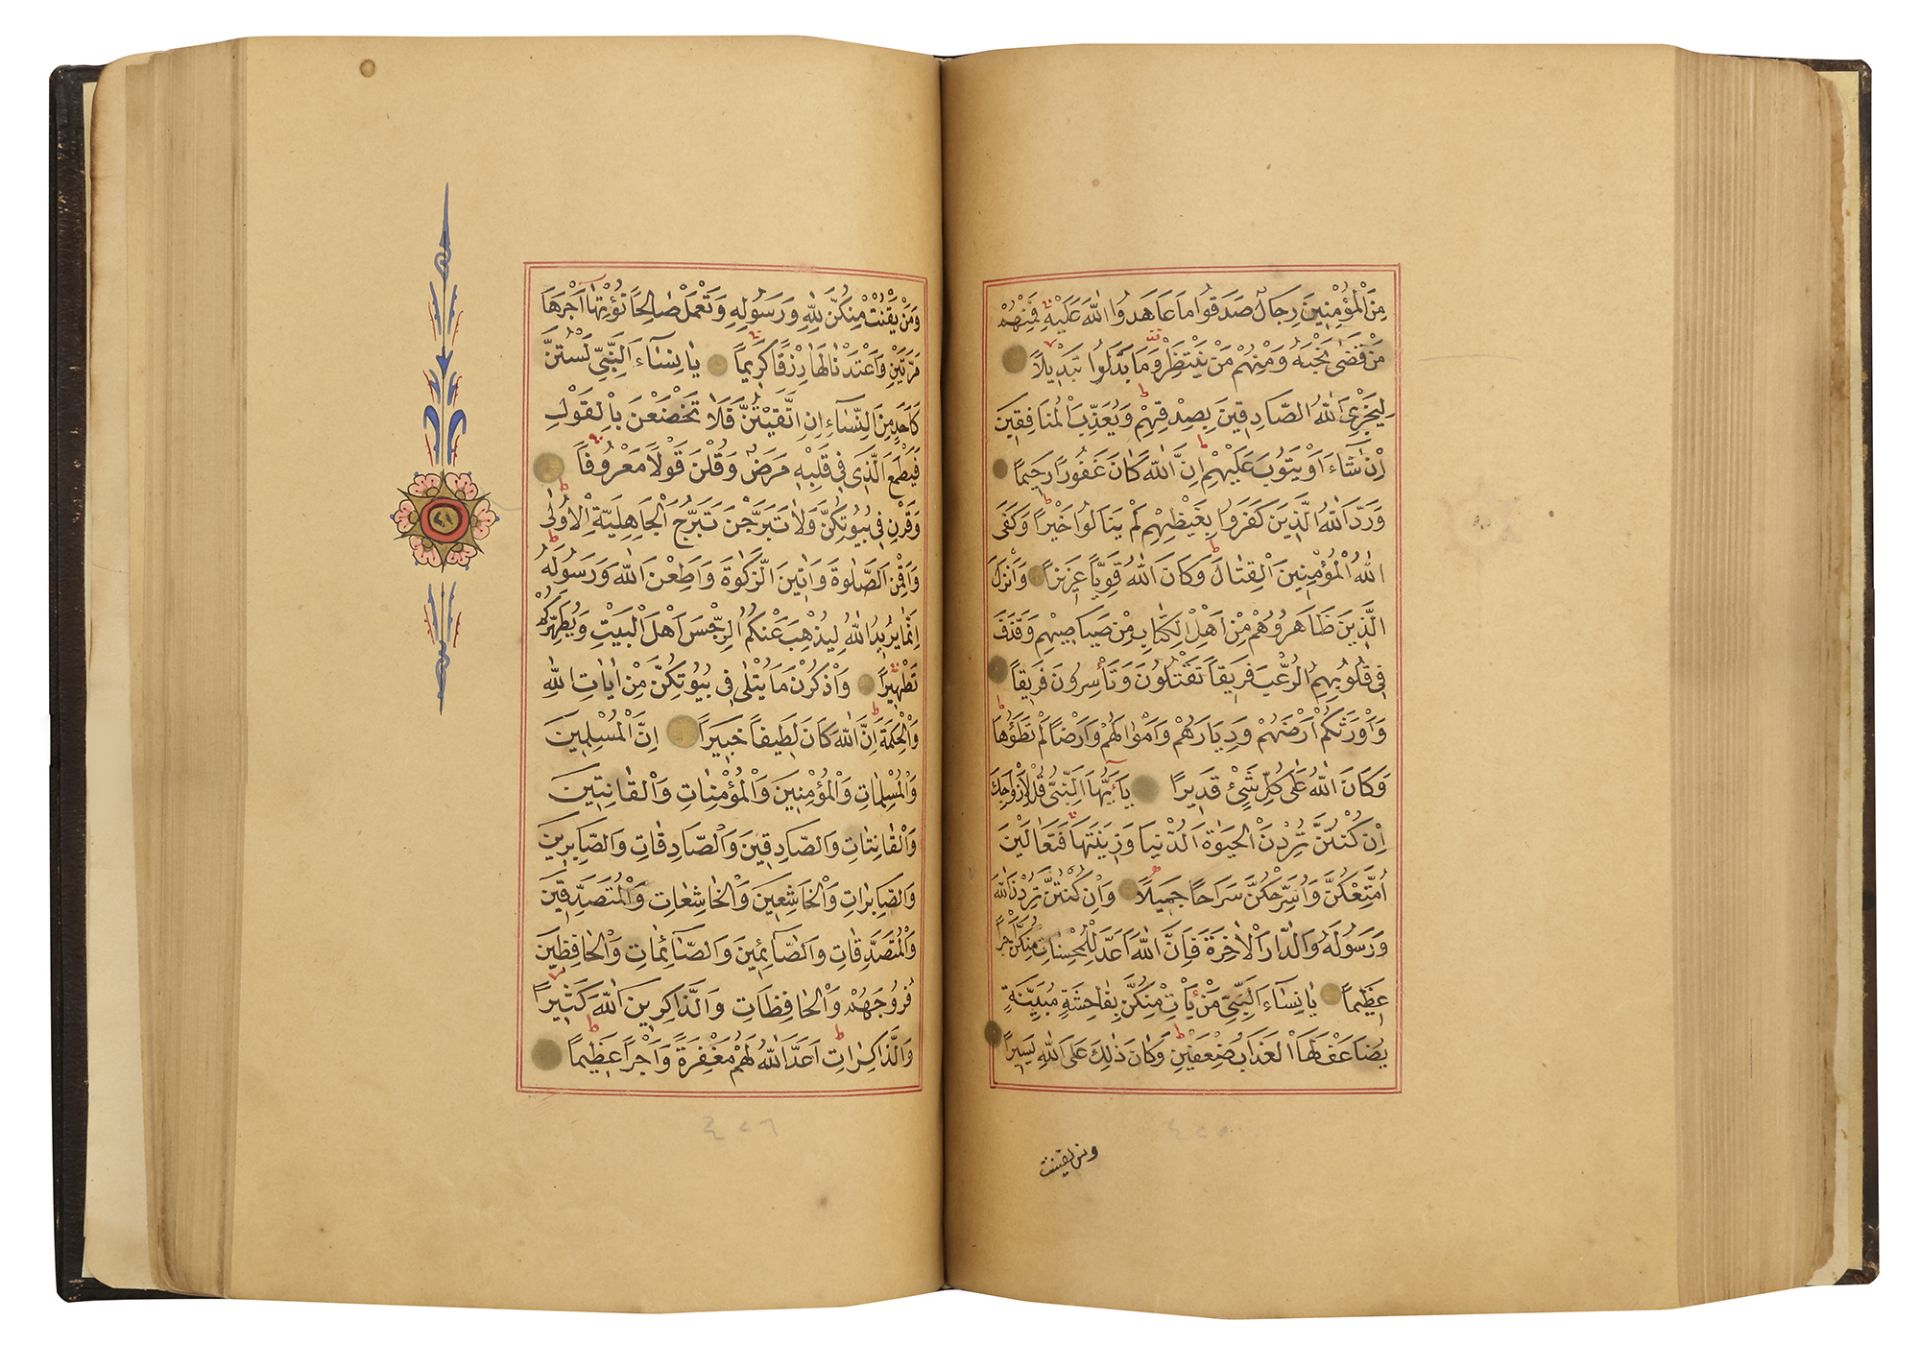 مِنَ الْمُؤْمِنِينَ رِجَالٌ صَدَقُوا مَا عَاهَدُوا اللّٰهَ عَلَيْهِ فَمِنْهُمْ
مَنْ قَضٰى نَحْبَهُ وَمِنْهُمْ مَنْ يَنْتَظِرُ وَمَا بَدَّلُوا تَبْدِيلًا
لِيَجْزِيَ اللّٰهُ الصَّادِقِينَ بِصِدْقِهِمْ وَيُعَذِّبَ الْمُنَافِقِينَ
اِنْ شَاءَ اَوْ يَتُوبَ عَلَيْهِمْ اِنَّ اللّٰهَ كَانَ غَفُورًا رَحِيمًا
وَرَدَّ اللّٰهُ الَّذِينَ كَفَرُوا بِغَيْظِهِمْ لَمْ يَنَالُوا خَيْرًا وَكَفَى
اللّٰهُ الْمُؤْمِنِينَ الْقِتَالَ وَكَانَ اللّٰهُ قَوِيًّا عَزِيزًا وَاَنْزَلَ
الَّذِينَ ظَاهَرُوهُمْ مِنْ اَهْلِ الْكِتَابِ مِنْ صَيَاصِيهِمْ وَقَذَفَ
فِي قُلُوبِهِمُ الرُّعْبَ فَرِيقًا تَقْتُلُونَ وَتَأْسِرُونَ فَرِيقًا
وَاَوْرَثَكُمْ اَرْضَهُمْ وَدِيَارَهُمْ وَاَمْوَالَهُمْ وَاَرْضًا لَمْ تَطَؤُهَا
وَكَانَ اللّٰهُ عَلٰى كُلِّ شَيْءٍ قَدِيرًا يَاَيُّهَا النَّبِيُّ قُلْ لِاَزْوَاجِكَ
اِنْ كُنْتُنَّ تُرِدْنَ الْحَيٰوةَ الدُّنْيَا وَزِينَتَهَا فَتَعَالَيْنَ
اُمَتِّعْكُنَّ وَاُسَرِّحْكُنَّ سَرَاحًا جَمِيلًا وَاِنْ كُنْتُنَّ تُرِدْنَ اللّٰهَ
وَرَسُولَهُ وَالدَّارَ الْاٰخِرَةَ فَاِنَّ اللّٰهَ اَعَدَّ لِلْمُحْسِنَاتِ مِنْكُنَّ اَجْرًا
عَظِيمًا يَا نِسَاءَ النَّبِيِّ مَنْ يَأْتِ مِنْكُنَّ بِفَاحِشَةٍ مُبَيِّنَةٍ
يُضَاعَفْ لَهَا الْعَذَابُ ضِعْفَيْنِ وَكَانَ ذٰلِكَ عَلَى اللّٰهِ يَسِيرًا
ومن يقنت
وَمَنْ يَقْنُتْ مِنْكُنَّ لِلّٰهِ وَرَسُولِهِ وَتَعْمَلْ صَالِحًا نُؤْتِهَا اَجْرَهَا
مَرَّتَيْنِ وَاَعْتَدْنَا لَهَا رِزْقًا كَرِيمًا يَا نِسَاءَ النَّبِيِّ لَسْتُنَّ
كَاَحَدٍ مِنَ النِّسَاءِ اِنِ اتَّقَيْتُنَّ فَلَا تَخْضَعْنَ بِالْقَوْلِ
فَيَطْمَعَ الَّذِي فِي قَلْبِهِ مَرَضٌ وَقُلْنَ قَوْلًا مَعْرُوفًا
وَقَرْنَ فِي بُيُوتِكُنَّ وَلَا تَبَرَّجْنَ تَبَرُّجَ الْجَاهِلِيَّةِ الْاُولٰى
وَاَقِمْنَ الصَّلٰوةَ وَاٰتِينَ الزَّكٰوةَ وَاَطِعْنَ اللّٰهَ وَرَسُولَهُ
اِنَّمَا يُرِيدُ اللّٰهُ لِيُذْهِبَ عَنْكُمُ الرِّجْسَ اَهْلَ الْبَيْتِ وَيُطَهِّرَكُمْ
تَطْهِيرًا وَاذْكُرْنَ مَا يُتْلٰى فِي بُيُوتِكُنَّ مِنْ اٰيَاتِ اللّٰهِ
وَالْحِكْمَةِ اِنَّ اللّٰهَ كَانَ لَطِيفًا خَبِيرًا اِنَّ الْمُسْلِمِينَ
وَالْمُسْلِمَاتِ وَالْمُؤْمِنِينَ وَالْمُؤْمِنَاتِ وَالْقَانِتِينَ
وَالْقَانِتَاتِ وَالصَّادِقِينَ وَالصَّادِقَاتِ وَالصَّابِرِينَ
وَالصَّابِرَاتِ وَالْخَاشِعِينَ وَالْخَاشِعَاتِ وَالْمُتَصَدِّقِينَ
وَالْمُتَصَدِّقَاتِ وَالصَّائِمِينَ وَالصَّائِمَاتِ وَالْحَافِظِينَ
فُرُوجَهُمْ وَالْحَافِظَاتِ وَالذَّاكِرِينَ اللّٰهَ كَثِيرًا
وَالذَّاكِرَاتِ اَعَدَّ اللّٰهُ لَهُمْ مَغْفِرَةً وَاَجْرًا عَظِيمًا